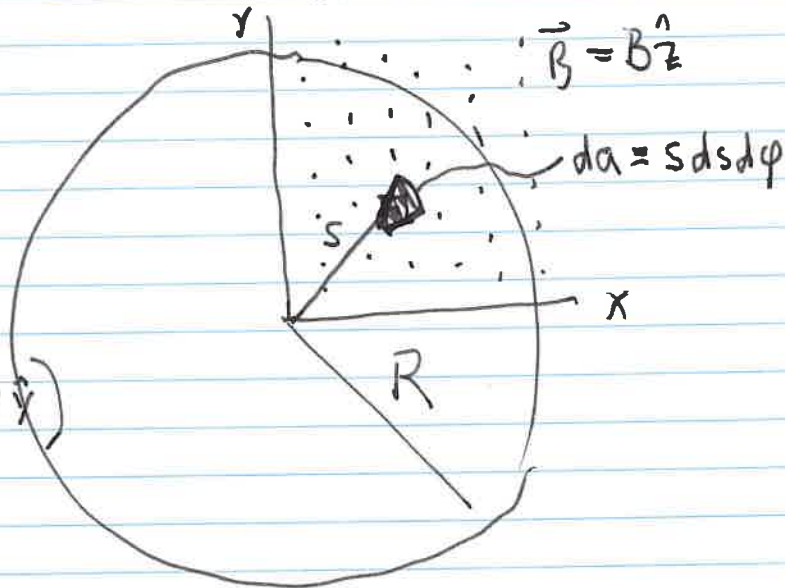 y
B⃗ = Bẑ
da = s ds dφ
s
x
R
ŷ)